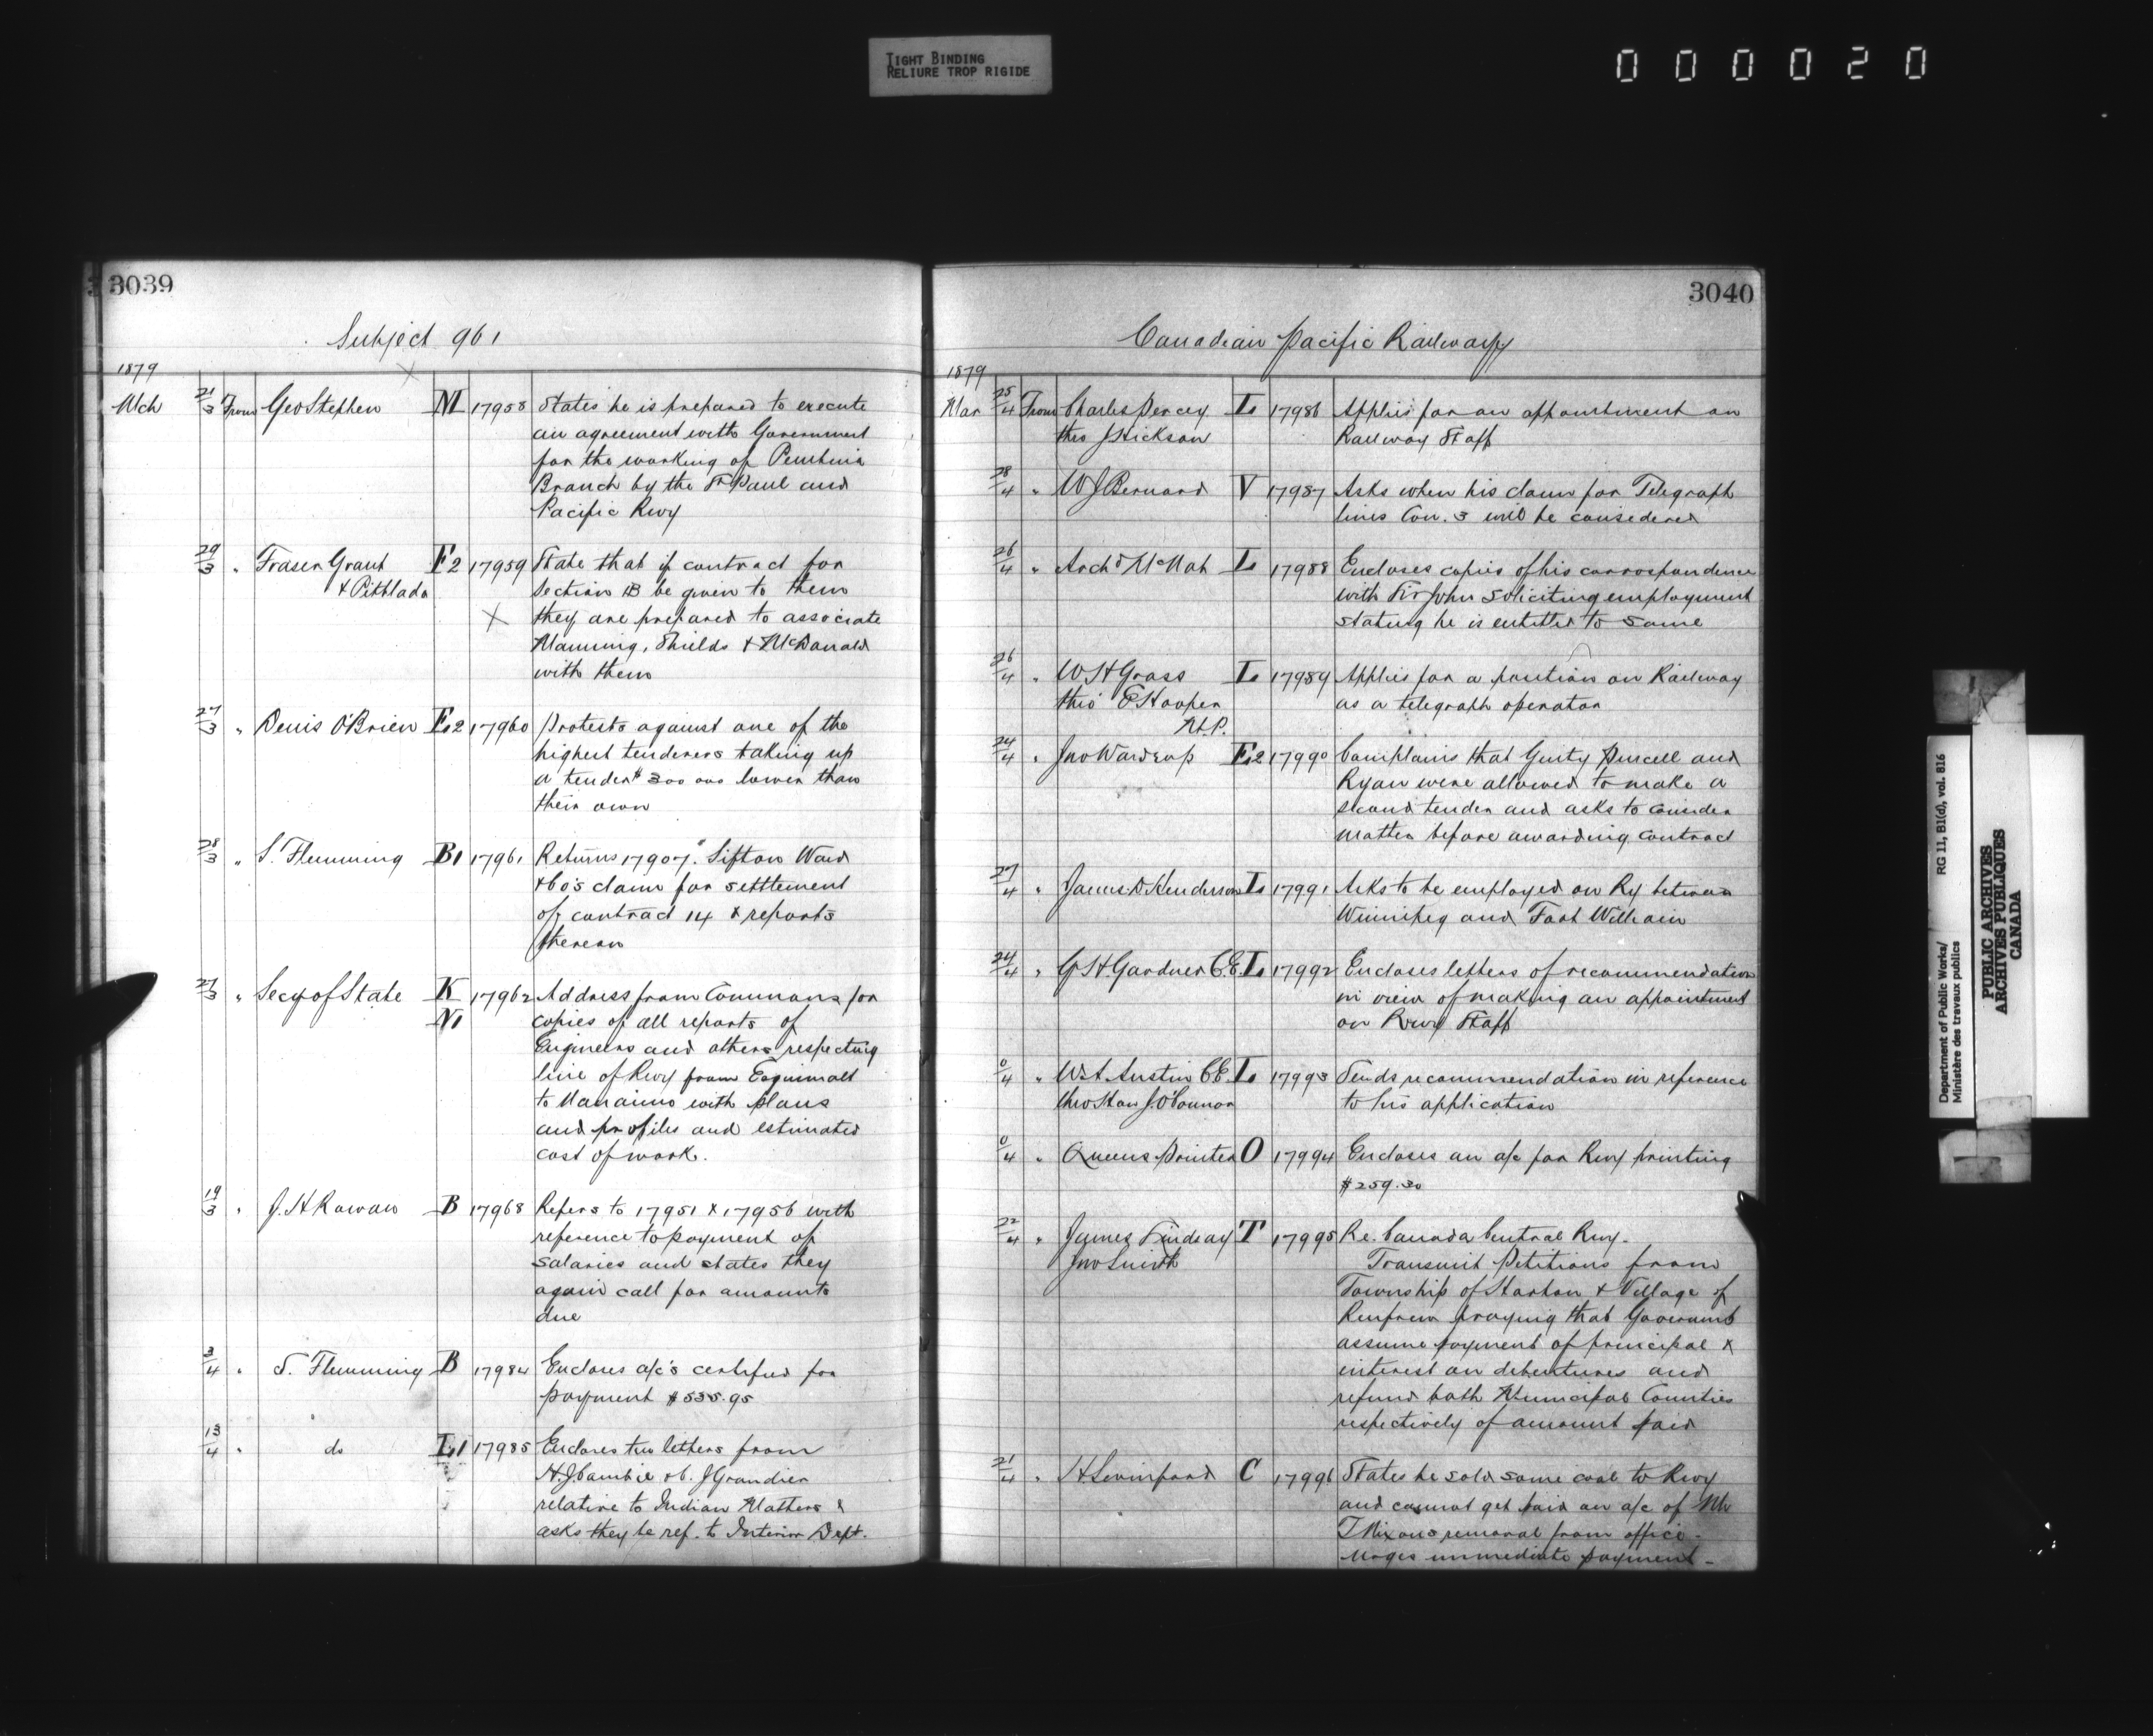 TIGHT BINDING
RELIURE TROP RIGIDE
000020
3039
Subject 961
1879
Mch 21/3 From Geo Stephen M 17958 States he is prepared to execute
an agreement with Government
for the working of Pembina
Branch by the St Paul and
Pacific Rwy
29/3 " Fraser Grant F2 17959 State that if contract for
& Pitblado Section B be given to them
they are prepared to associate
Manning, Shields & McDonald
with them
27/3 " Denis O'Brien F2 17960 Protests against one of the
highest tenderers taking up
a tender $300 000 lower than
their own
28/3 " S. Flemming B1 17961 Returns 17907. Sifton Ward
& Co's claim for settlement
of contract 14 & reports
thereon
27/3 " Secy of State K 17962 Address from Commons for
N1 copies of all reports of
Engineers and others respecting
line of Rwy from Esquimalt
to Nanaimo with plans
and profiles and estimated
cost of work.
19/3 " J. H Rowan B 17968 Refers to 17951 & 17956 with
reference to payment of
salaries and states they
again call for amounts
due
3/4 " S. Flemming B 17984 Encloses a/c's certified for
payment $535.95
13/4 " do L1 17985 Encloses two letters from
H. J. Cambie & C. J Grandier
relative to Indian Matters &
asks they be ref. to Interior Dept.
3040
Canadian Pacific Railway
1879
Mar 25/4 From Charles Percey L 17986 Applies for an appointment on
thro J Hickson Railway Staff
28/4 " W J Bernard V 17987 Asks when his claim for Telegraph
lines Con. 3 will be considered
26/4 " Archd McNab L 17988 Encloses copies of his correspondence
with Sir John soliciting employment
stating he is entitled to same
26/4 " W H Grass L 17989 Applies for a position on Railway
thro' E Hooper as a telegraph operator
M.P.
24/4 " Jno Wardrop F2 17990 Complains that Ginty Purcell and
Ryan were allowed to make a
second tender and asks to consider
matter before awarding contract
27/4 " James D Henderson L 17991 Asks to be employed on Ry between
Winnipeg and Fort William
24/4 " G. H. Gardner C.E. L 17992 Encloses letters of recommendation
in view of making an appointment
on Rwy Staff
0/4 " W. A. Austin C.E. L 17993 Sends recommendation in reference
thro Hon J. O'Connor to his application
0/4 " Queens Printer O 17994 Encloses an a/c for Rwy printing
$259.30
22/4 " James Lindsay T 17995 Re. Canada Central Rwy.
Jno Smith Transmit Petitions from
Township of Horton & Village of
Renfrew praying that Governmt
assume payment of principal &
interest on debentures and
refund both Municipal Counties
respectively of amount paid
21/4 " H. Swinford C 17996 States he sold some coal to Rwy
and cannot get paid on a/c of Mr
T Nixons removal from office -
urges immediate payment -
Department of Public Works/
Ministère des travaux publics
RG 11, B1(d), vol. 816
PUBLIC ARCHIVES
ARCHIVES PUBLIQUES
CANADA